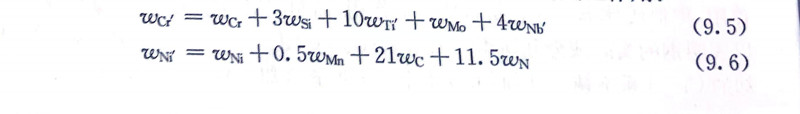 w_Cr′ = w_Cr + 3w_Si + 10w_Ti′ + w_Mo + 4w_Nb′ (9.5)
w_Ni′ = w_Ni + 0.5w_Mn + 21w_C + 11.5w_N (9.6)